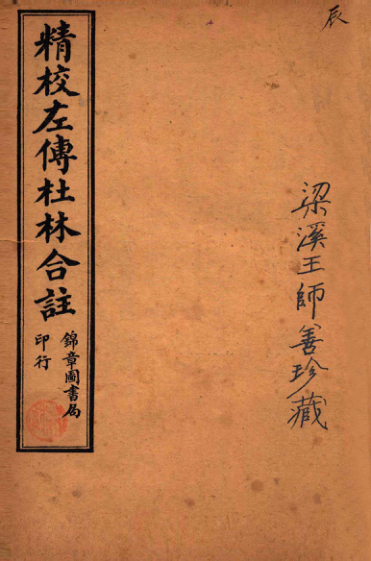 辰
梁溪王師善珍藏
精校左傳杜林合註
錦章圖書局
印行